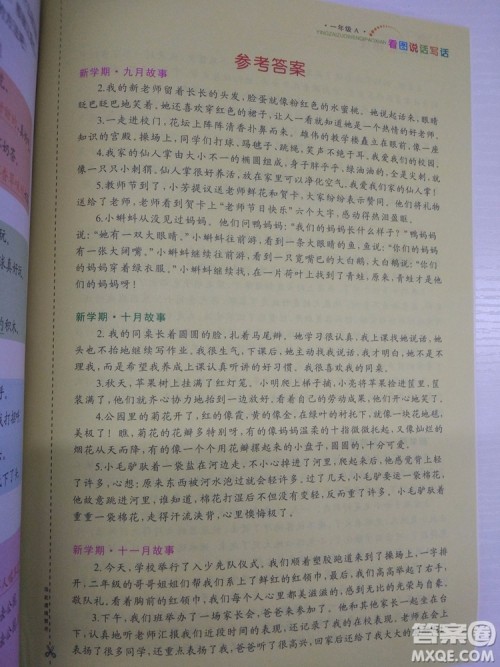 ·一年级 A·
看图说话写话
参考答案
新学期·九月故事
2.我的新老师留着长长的头发，脸蛋就像粉红色的水蜜桃。她说起话来，眼睛
眨巴眨巴地笑着，她还喜欢穿红色的裙子，让人一看就知道她是一个热情的好老师。
3.一走进校门，花坛上阵阵清香扑鼻而来。雄伟的教学楼矗立在眼前，像一座
知识的宫殿。操场上，同学们打球，踢毽子，跳绳，笑声不绝于耳。我爱我们的校园。
4.我家的仙人掌由大小不一的椭圆组成，身子胖乎乎，绿油油的，全是尖刺，就
像一只只小刺猬。仙人掌很好养活，放在家里可以净化空气，我爱我们家的仙人掌！
5.教师节到了，小芳提议送给老师鲜花和贺卡，大家纷纷表示赞同。他们将礼物
送给了老师，老师看到贺卡上“老师节日快乐”六个大字，感动得热泪盈眶。
6.小蝌蚪从没见过妈妈。他们问鸭妈妈：“我们的妈妈长什么样子？”鸭妈妈
说：“她有一双大眼睛。”小蝌蚪往前游，看到一条大眼睛的鱼，鱼说：“你们的妈妈
有一张大阔嘴。”小蝌蚪继续往前游，看到一只宽嘴巴的大白鹅，大白鹅说：“你们
的妈妈穿着绿衣服。”小蝌蚪继续往前找，在一片荷叶上找到了青蛙，原来，青蛙才是
他们的妈妈呀！
新学期·十月故事
2.我的同桌长着圆圆的脸，扎着马尾辫。她学习很认真，我上课找她说话，她
头也不抬地继续写作业，我很生气，下课后，她主动找我说话，我不好意思地低下了
头。我希望我养成上课认真听讲的好习惯。我很喜欢我的同桌。
3.秋天，苹果树上挂满了红灯笼。小明爬上梯子摘，小亮将苹果拾进筐里，筐
装满了，他们就齐心协力地抬回家。看到自己的劳动成果，他们开心地笑了。
4.公园里的菊花开了，红的像霞，黄的像金，在绿叶的衬托下，就像一块花地毯，
美极了！瞧，菊花的花瓣多特别呀，有的像妈妈温柔的十指微微托起，又像灿烂的
烟花四散开来，有的像一个个用花瓣拼摆起来的小盘子，圆圆的，十分可爱。
5.小毛驴驮着一袋盐在河边走，不小心掉进了河里，爬起来后，他感觉背上轻
了许多，心想：原来东西被河水泡过就会轻许多。过了几天，小毛驴又要运一袋棉花，
他故意跳进河里，谁知道，棉花打湿后不但没有变轻，反而重了许多。小毛驴驮着
重重一袋棉花，走得汗流浃背，心里懊悔极了。
新学期·十一月故事
2.今天，学校举行了入少先队仪式，我们顺着塑胶跑道来到了操场上，一字排
开，二年级的哥哥姐姐们帮我们系上了鲜红的红领巾，最后，我们一起向红领巾
敬队礼。看着胸前的红领巾，我们心里都美滋滋的，感到无比的光荣与自豪。
3.下午，我们举办了一场家长会，爸爸来参加了。他和其他家长一起在校园
认真地听老师汇报我们近段时间的表现，还记录了我的在校表现。老师在会上
我进步了很多，还重点表扬了我，爸爸听了很高兴，回家后还给了我大大的
答案圈
MXQE.COM